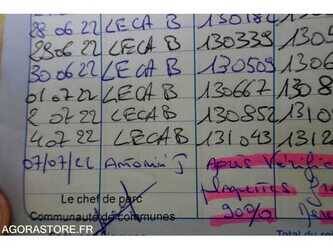 28 06 22 LECA B 130182
29 06 22 LECA B 130339 1305
30 06 22 LECA B 130509 1306
01 07 22 LECA B 130667 1308
2 07 22 LECA B 130852 1310
4 07 22 LECA B 131043 1312
07/07/22 Antonini J Apres
plaquettes
Le chef de parc 90%
Communauté de communes
AGORASTORE.FR